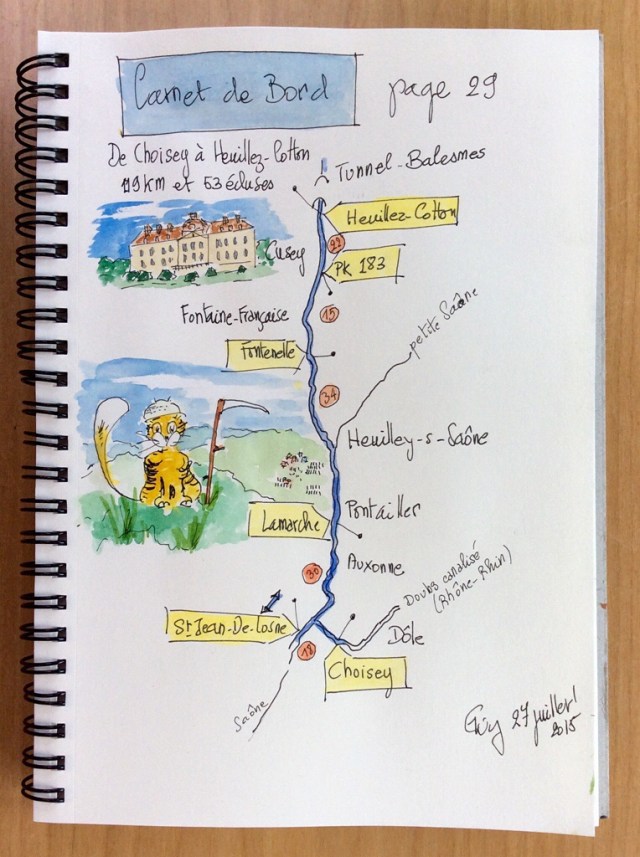 Carnet de Bord
page 29
De Choisey à Heuillez-Cotton
119km et 53 écluses
Tunnel-Balesmes
Heuillez-Cotton
Cusey
22
PK 183
Fontaine-Française
15
petite Saône
Fontenelle
34
Heuilley-s-Saône
Lamarche
Pontailler
30
Auxonne
Doubs canalisé
(Rhône-Rhin)
St Jean-De-Losne
Dôle
18
Choisey
Saône
Guy 27 juillet
2015